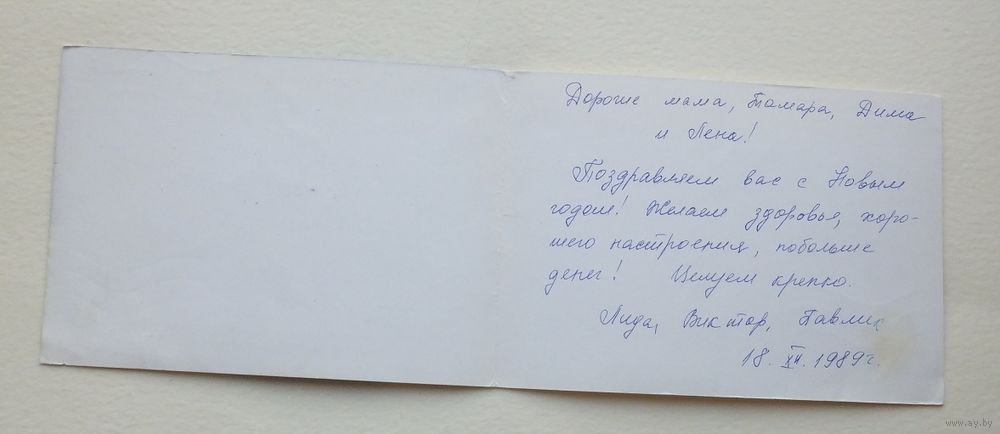 Дорогие мама, Тамара, Дима
и Лена!
Поздравляем вас с Новым
годом! Желаем здоровья, хоро-
шего настроения, побольше
денег! Целуем крепко.
Лида, Виктор, Павлик
18. XII. 1989 г.
www.ay.by